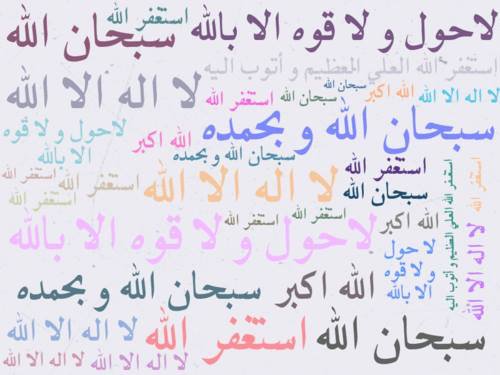 استغفر الله
لاحول و لا قوه الا بالله
سبحان الله
استغفر الله العلي العظيم و أتوب اليه
لا اله الا الله
سبحان الله
الله اكبر
لا اله الا الله
استغفر الله
سبحان الله
سبحان الله و بحمده
لاحول و لا قوه
الا بالله
الله اكبر
سبحان الله و بحمده
استغفر الله
استغفر الله
استغفر الله
لا اله الا الله
سبحان الله
استغفر الله
استغفر الله
استغفر الله
استغفر الله
الله اكبر
لاحول و لا قوه الا بالله
لا حول
و لا قوه
الا بالله
استغفر الله العلي العظيم و أتوب اليه
استغفر الله
لا اله الا الله
الله اكبر
سبحان الله و بحمده
سبحان الله
استغفر الله
لا اله الا الله
لا اله الا الله
لا اله الا الله